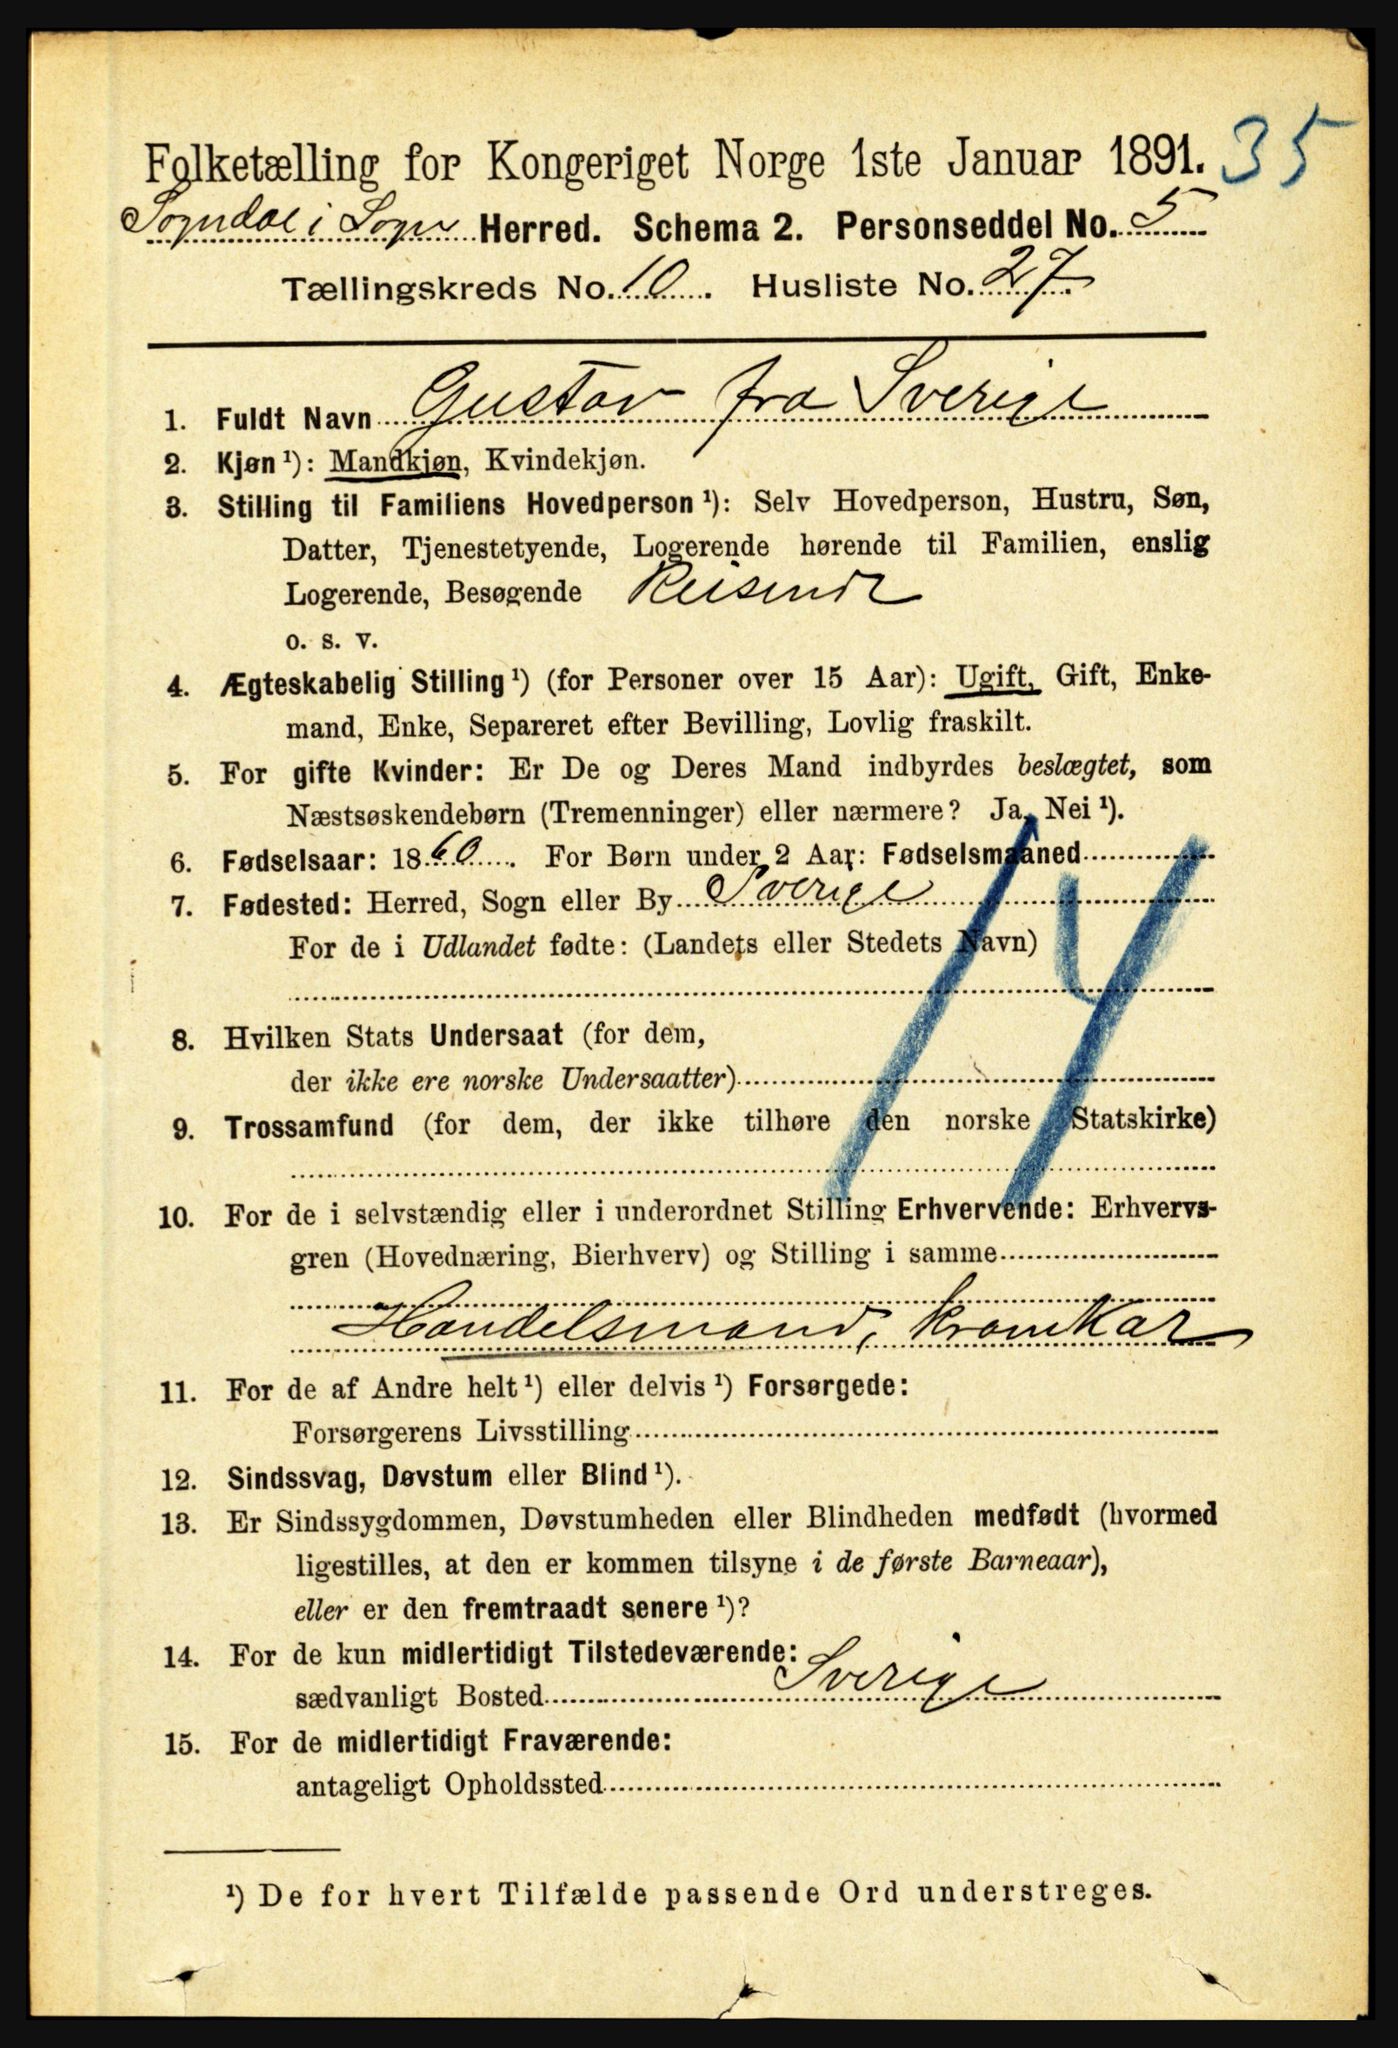 Folketælling for Kongeriget Norge 1ste Januar 1891. 35
Sogndal i Sogn Herred. Schema 2. Personseddel No. 5
Tællingskreds No. 10. Husliste No. 27.
1. Fuldt Navn Gustav fra Sverige
2. Kjøn ¹): Mandkjøn, Kvindekjøn.
3. Stilling til Familiens Hovedperson ¹): Selv Hovedperson, Hustru, Søn,
Datter, Tjenestetyende, Logerende hørende til Familien, enslig
Logerende, Besøgende Reisende
o. s. v.
4. Ægteskabelig Stilling ¹) (for Personer over 15 Aar): Ugift, Gift, Enke-
mand, Enke, Separeret efter Bevilling, Lovlig fraskilt.
5. For gifte Kvinder: Er De og Deres Mand indbyrdes beslægtet, som
Næstsøskendebørn (Tremenninger) eller nærmere? Ja, Nei ¹).
6. Fødselsaar: 1860. For Børn under 2 Aar: Fødselsmaaned
7. Fødested: Herred, Sogn eller By Sverige
For de i Udlandet fødte: (Landets eller Stedets Navn)
14
8. Hvilken Stats Undersaat (for dem,
der ikke ere norske Undersaatter)
9. Trossamfund (for dem, der ikke tilhøre den norske Statskirke)
10. For de i selvstændig eller i underordnet Stilling Erhvervende: Erhvervs-
gren (Hovednæring, Bierhverv) og Stilling i samme
Handelsmand, kramkar
11. For de af Andre helt ¹) eller delvis ¹) Forsørgede:
Forsørgerens Livsstilling
12. Sindssvag, Døvstum eller Blind ¹).
13. Er Sindssygdommen, Døvstumheden eller Blindheden medfødt (hvormed
ligestilles, at den er kommen tilsyne i de første Barneaar),
eller er den fremtraadt senere ¹)?
14. For de kun midlertidigt Tilstedeværende:
sædvanligt Bosted Sverige
15. For de midlertidigt Fraværende:
antageligt Opholdssted
¹) De for hvert Tilfælde passende Ord understreges.